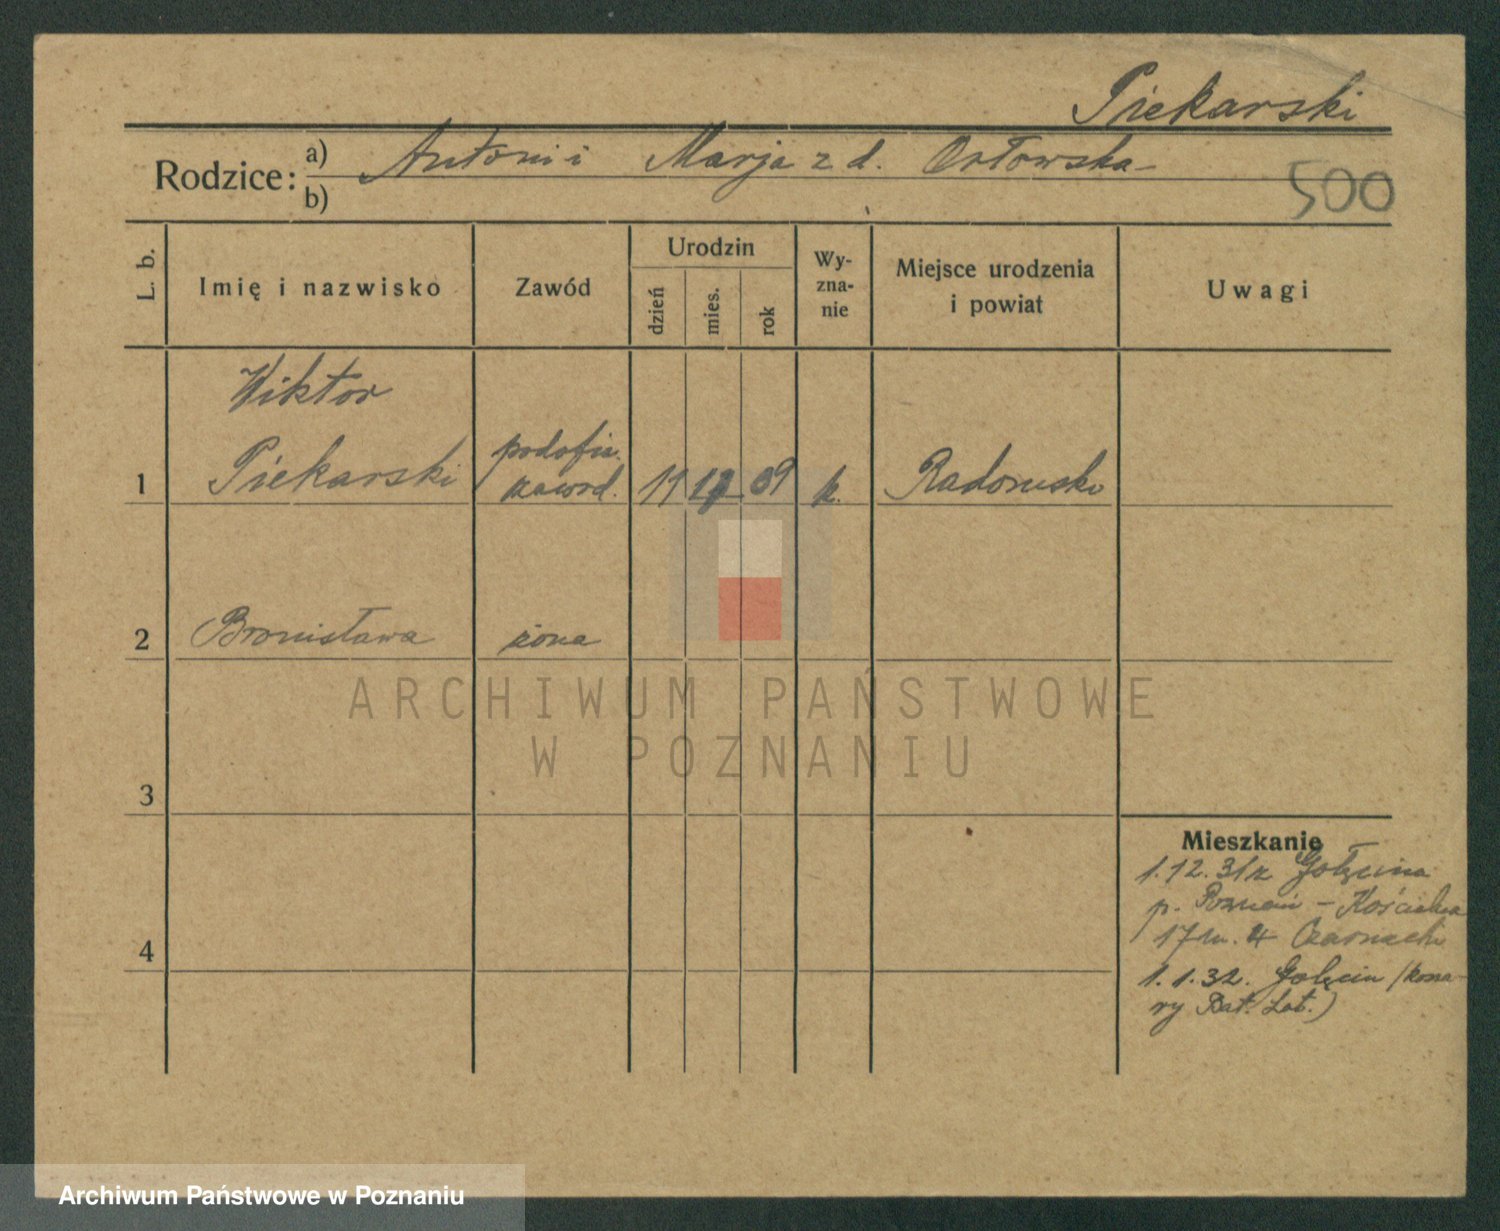 Piekarski
Rodzice: a) Antoni i Marja z d. Orłowska
b)
500
L. b.
Imię i nazwisko
Zawód
Urodzin
dzień
mies.
rok
Wy-
zna-
nie
Miejsce urodzenia
i powiat
Uwagi
Wiktor
1 Piekarski podofic. zawod. 19 09 k.
2 Bronisława żona
3
4
Mieszkanie
1.12.31 z Golęcina
p. Poznań - Kościelna
17 m. 4
1.1.32. Golęcin (kosza-
ry Bat. Lot.)
ARCHIWUM PAŃSTWOWE
W POZNANIU
Archiwum Państwowe w Poznaniu